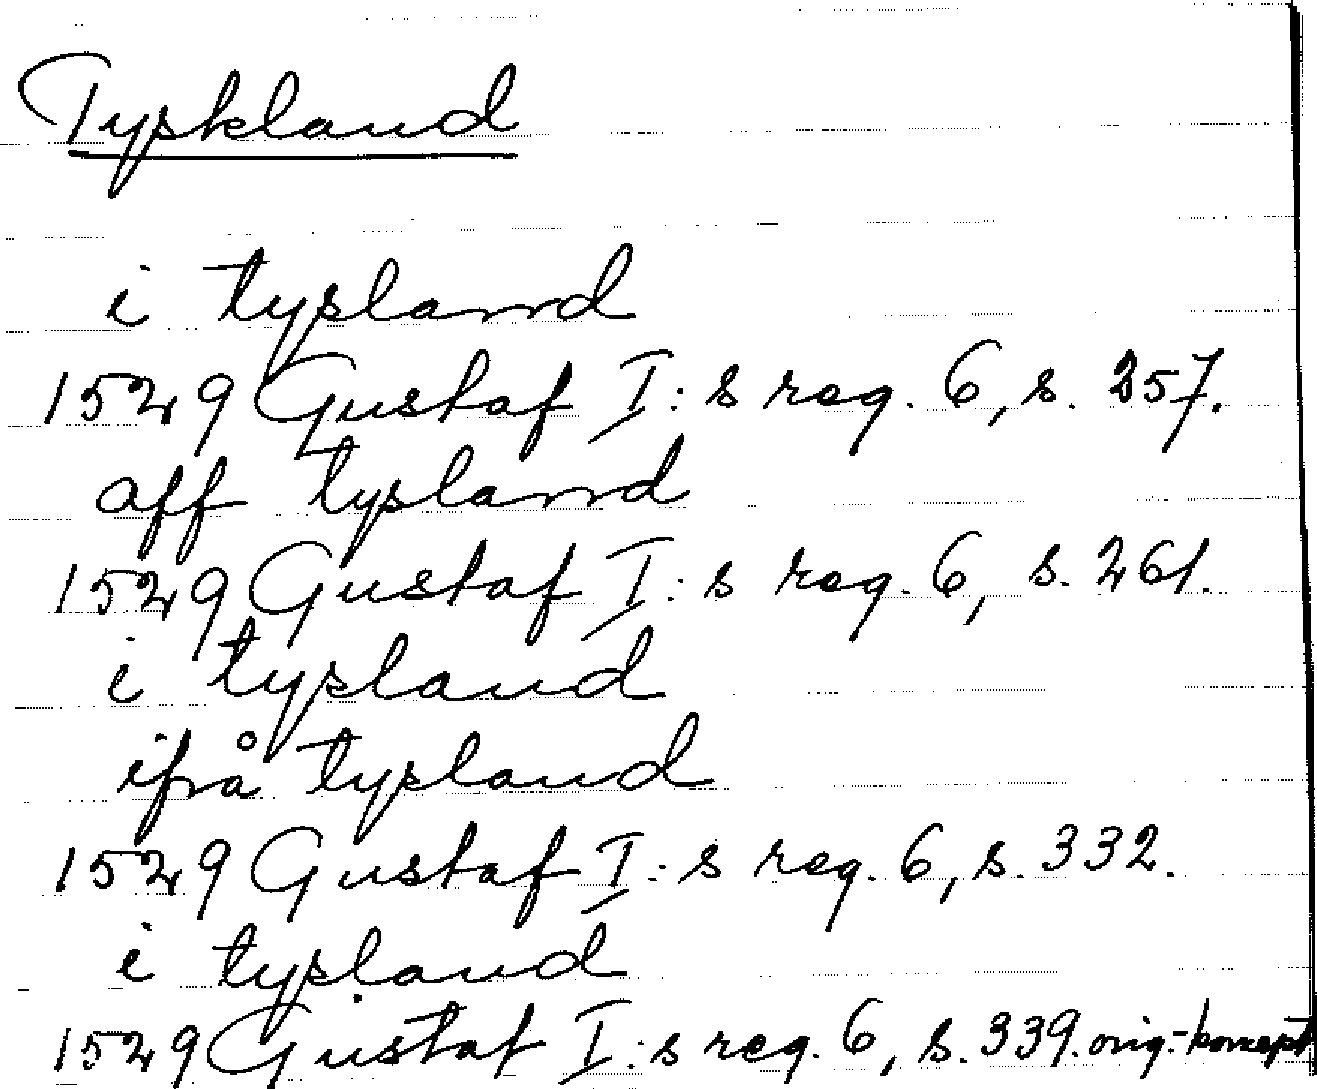 Tyskland
i tyslannd
1529 Gustaf I:s reg. 6, s. 257.
aff tyslannd
1529 Gustaf I:s reg. 6, s. 261.
i tysland
ifrå tysland
1529 Gustaf I:s reg. 6, s. 332.
i tysland
1529 Gustaf I:s reg. 6, s. 339. orig.-koncept